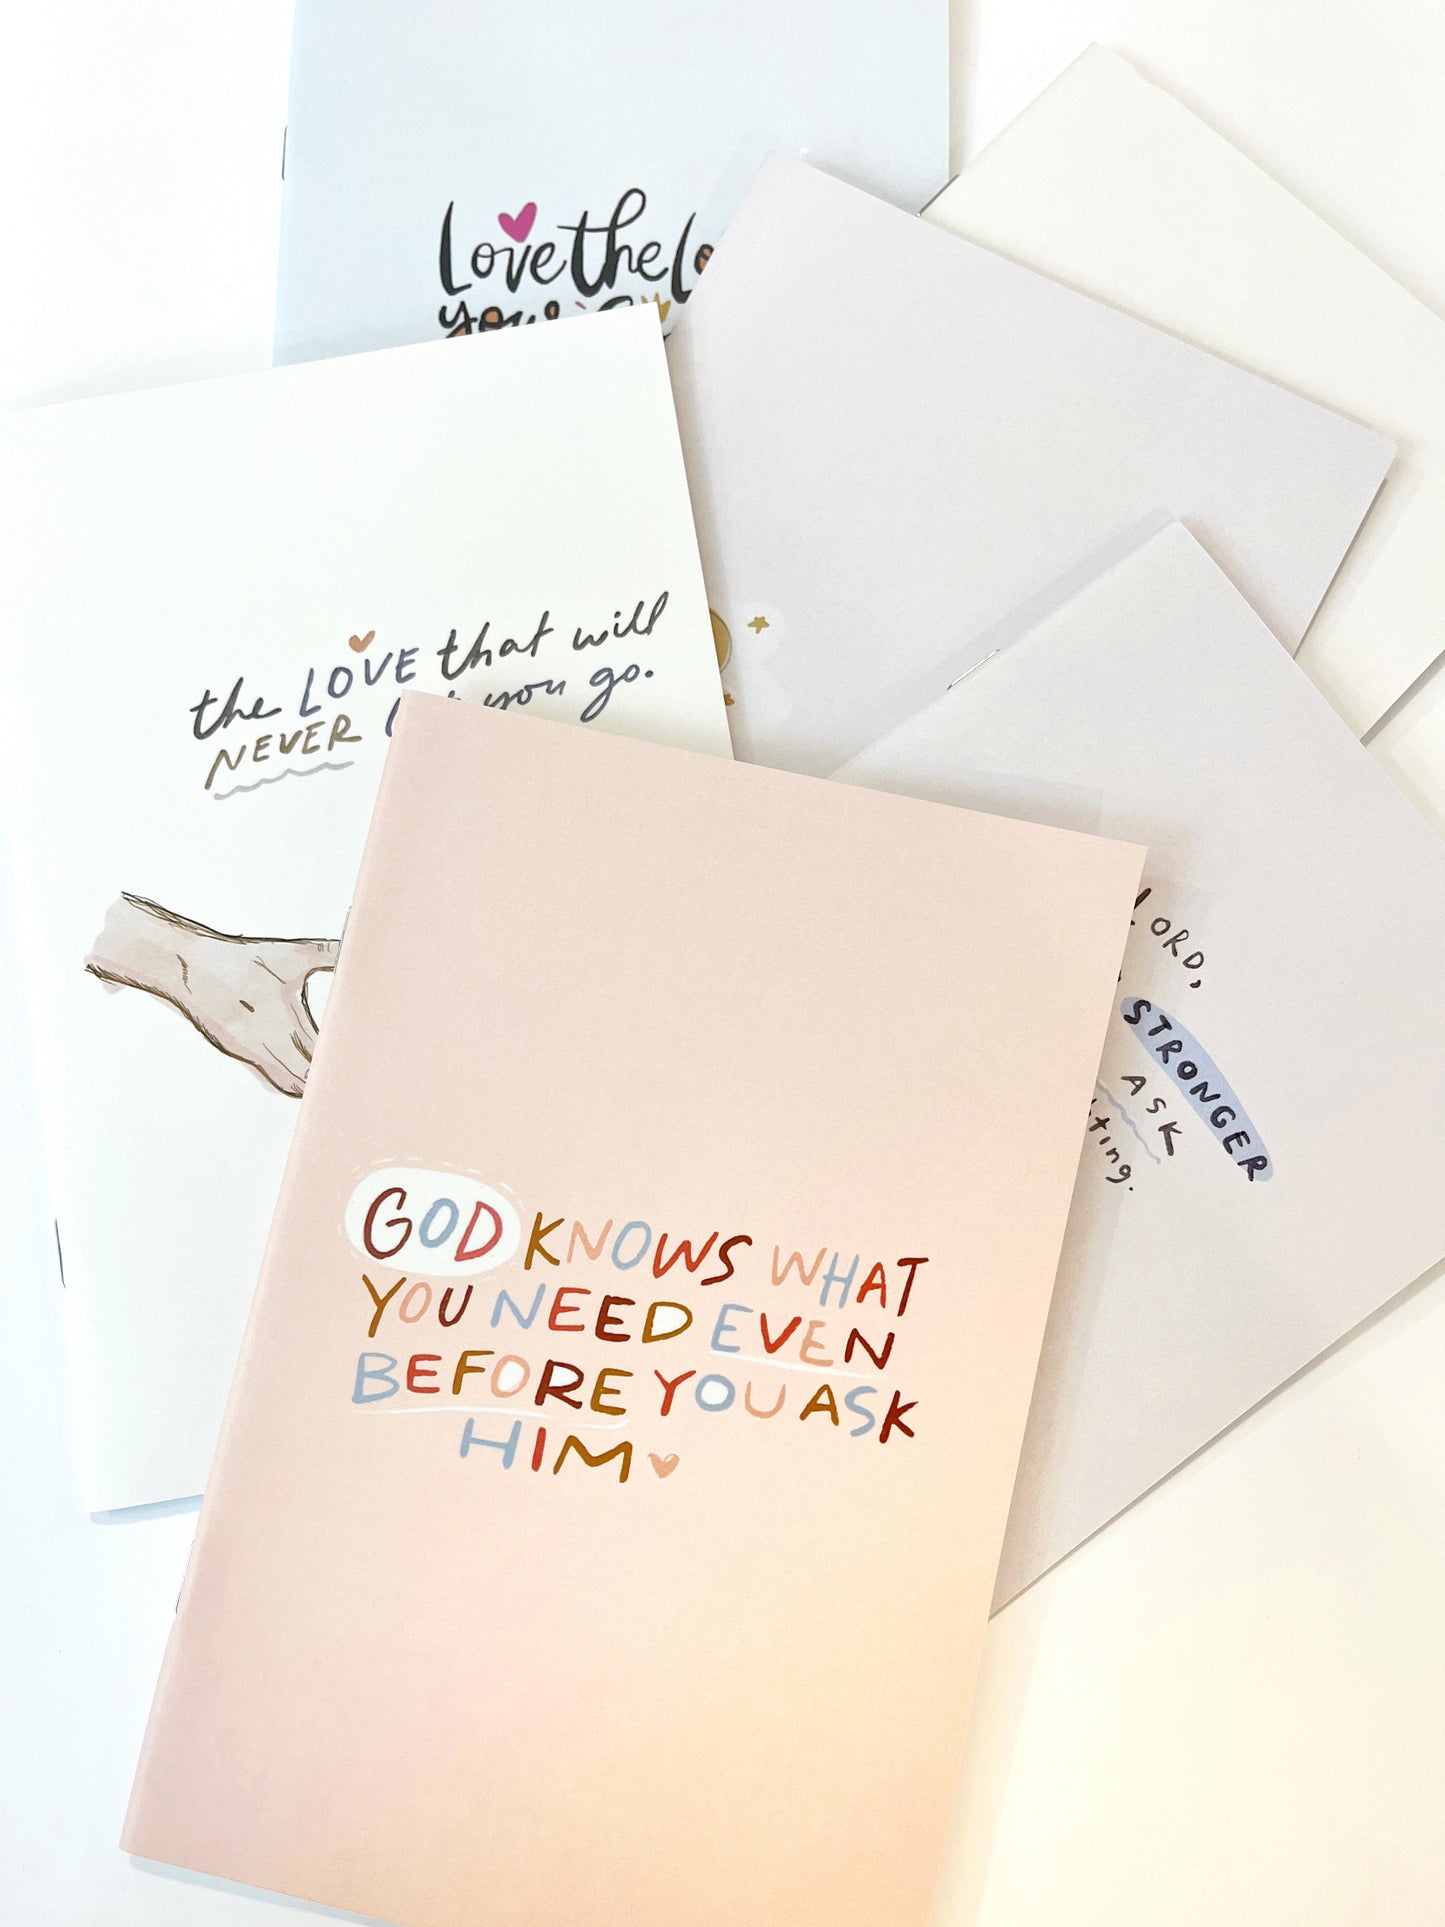 Love the
your
the LOVE that will
NEVER you go.
LORD,
STRONGER
ASK
GOD KNOWS WHAT
YOU NEED EVEN
BEFORE YOU ASK
HIM